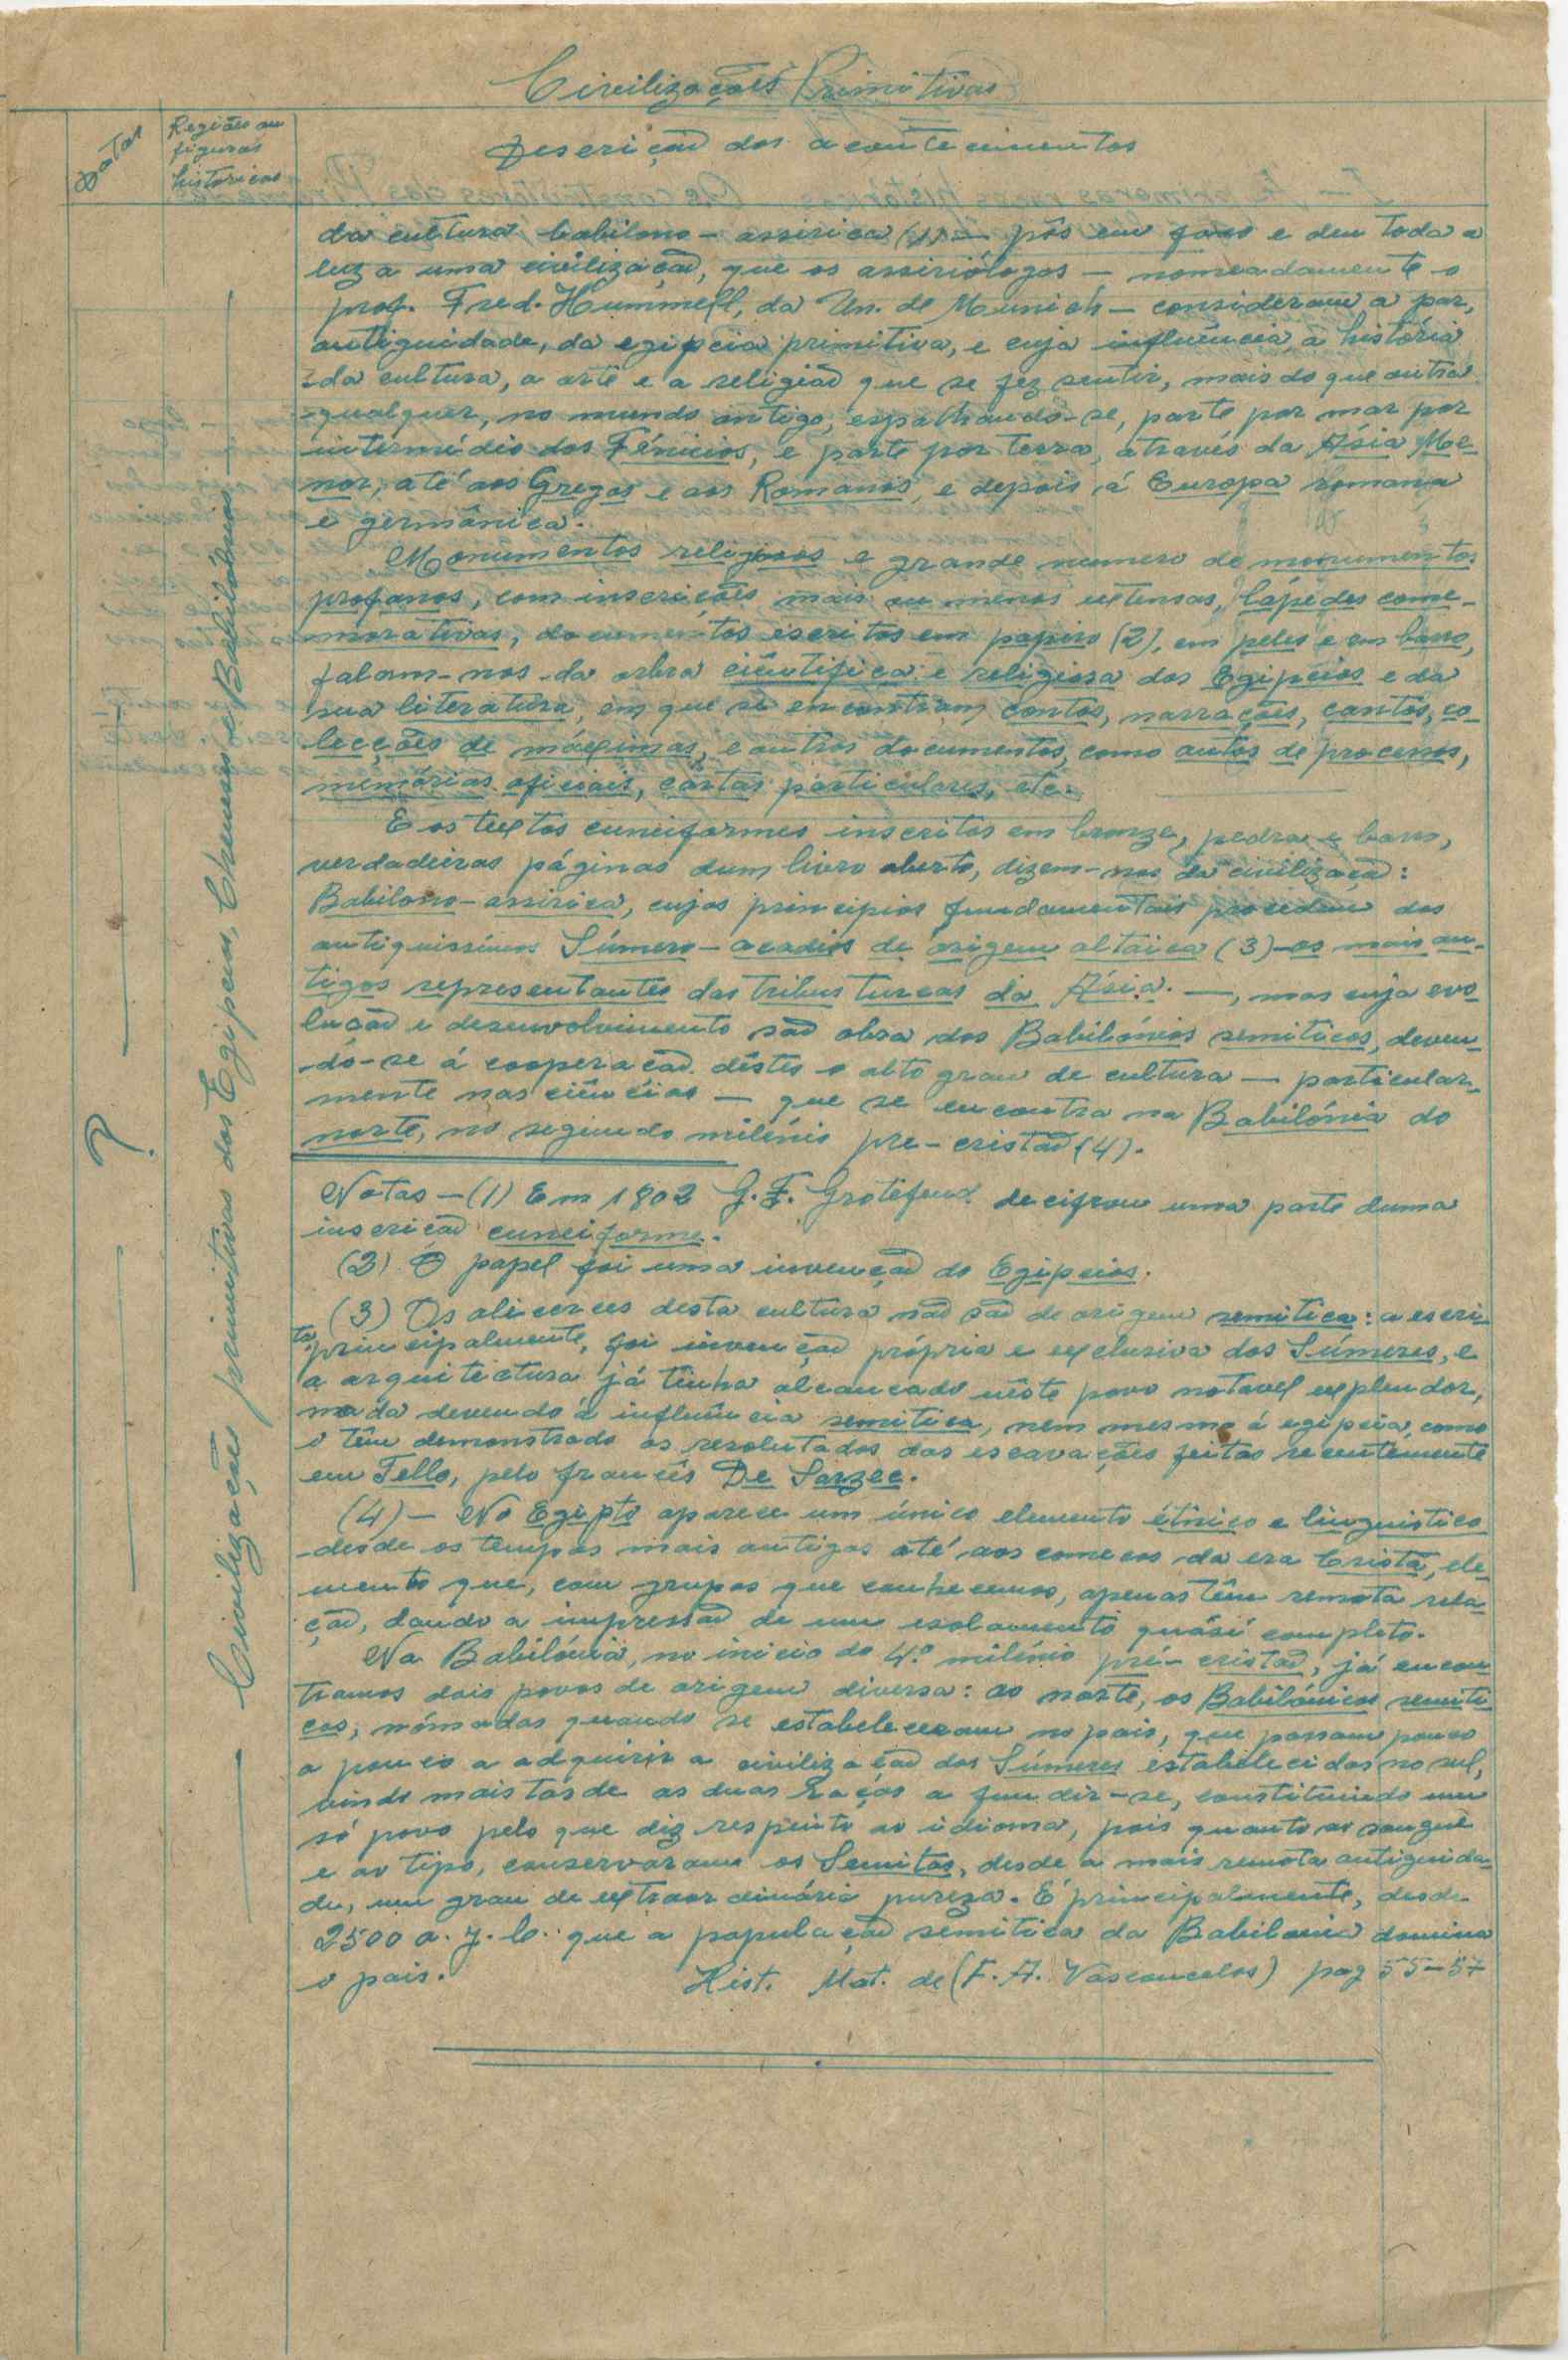 Civilizações Primitivas
Datas
Região ou
figuras
historicas
Descrição dos acontecimentos
da cultura babilono-assirica (1) — pôs em foco e deu toda a
luz a uma civilização, que os assiriólogos — nomeadamente o
prof. Fred. Hummell, da Un. de Munich — consideram a par,
antiguidade, da egipcia primitiva, e cuja influência à história
da cultura, a arte e a religião que se fez sentir, mais do que outra
qualquer, no mundo antigo, espalhando-se, parte por mar por
intermédio dos Fénicios, e parte por terra, através da Ásia Me-
nor, até aos Gregos e aos Romanos, e depois á Europa romana
e germânica.
Monumentos religiosos e grande numero de monumentos
profanos, com inscrições mais ou menos extensas, lápedes come-
morativas, documentos escritos em papiro (2), em peles e em barro,
falam-nos da obra ciêntifica e religiosa dos Egipcios e da
sua literatura, em que se encontram contos, narrações, cantos, co-
lecções de máximas, e outros documentos, como autos de processos,
memórias oficiais, cartas particulares, etc.
E os textos cuneiformes inscritos em bronze, pedra e barro,
verdadeiras páginas dum livro aberto, dizem-nos da civilização:
Babilono-assirica, cujos principios fundamentais procedem dos
antiquissimos Súmero-acadios de origem altaica (3)-os mais an-
tigos representantes das tribus turcas da Ásia. —, mas cuja evo-
lução e desenvolvimento são obra dos Babilónios semiticos, deven-
-do-se á cooperação dêstes o alto grau de cultura — particular-
mente nas ciências — que se encontra na Babilónia do
norte, no segundo milénio pre-cristão (4).
Notas — (1) Em 1802 G. F. Grotefend decifrou uma parte duma
inscrição cuneiforme.
(2) O papel foi uma invenção do Egipcios.
(3) Os alicerces desta cultura não são de origem semitica: a escri-
ta, principalmente, foi invenção própria e exclusiva dos Súmeres, e
a arquitectura já tinha alcançado nêste povo notavel explendor,
nada devendo à influência semitica, nem mesmo á egipcia, como
o têm demonstrado os resolutados das escavações feitas recentemente
em Tello, pelo francês De Sarzec.
(4) — No Egipto aparece um único elemento étnico e linguistico
-desde os tempos mais antigos até aos começos da era Cristã, ele-
mento que, com grupos que conhecemos, apenas têm remota rela-
ção, dando a impressão de um esolamento quási completo.
Na Babilónia, no inicio do 4.º milénio pré-cristão, já encon
tramos dois povos de origem diversa: ao norte, os Babilónicos semiti
cos, nómadas quando se estabeleceram no pais, que passam pouco
a pouco a adquirir a civilização dos Súmeres estabelecidos no sul,
vindo mais tarde as duas raças a fundir-se, constituindo um
só povo pelo que diz respeito ao idioma, pois quanto ao sangue
e ao tipo, conservaram os Semitas, desde a mais remota antiguida-
de, um grau de extraordinária pureza. É principalmente, desde
2500 a. J. C. que a população semitica da Babilonia domina
o pais.
Hist. Mat. de (F. A. Vasconcelos) pag 55-57
— Civilizações primitivas dos Egipcios, Chineses e Babilónios —
?